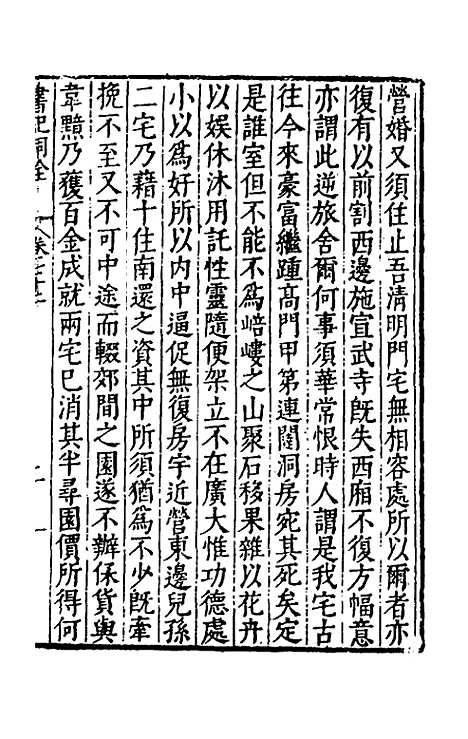 營婚又須住止吾清明門宅無相容處所以爾者亦
復有以前割西邊施宣武寺旣失西廂不復方幅意
亦謂此逆旅舍爾何事須華常恨時人謂是我宅古
往今來豪富繼踵高門甲第連闥洞房宛其死矣定
是誰室但不能不爲峿嶁之山聚石移果雜以花卉
以娛休沐用託性靈隨便架立不在廣大惟功德處
小以爲好所以內中逼促無復房宇近營東邊兒孫
二宅乃藉十住南還之資其中所須猶爲不少旣牽
挽不至又不可中途而輟郊間之園遂不辦保貨與
韋黯乃獲百金成就兩宅巳消其半尋園價所得何
書記洞詮